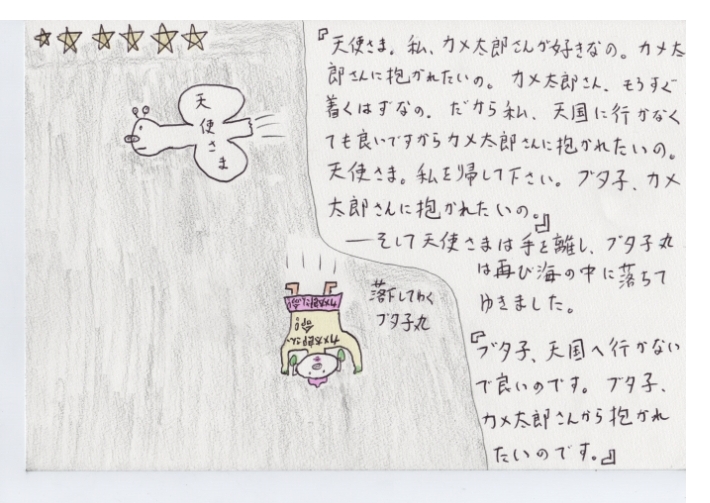 天使さま
『天使さま。私、カメ太郎さんが好きなの。カメ太
郎さんに抱かれたいの。カメ太郎さん、もうすぐ
着くはずなの。だから私、天国に行かなく
ても良いですからカメ太郎さんに抱かれたいの。
天使さま。私を帰して下さい。ブタ子、カメ
太郎さんに抱かれたいの。』
――そして天使さまは手を離し、ブタ子丸
は再び海の中に落ちて
ゆきました。
落下してゆく
ブタ子丸
カメ太郎さん
命
カメ太郎さん命
『ブタ子、天国へ行かない
で良いのです。ブタ子、
カメ太郎さんから抱かれ
たいのです。』